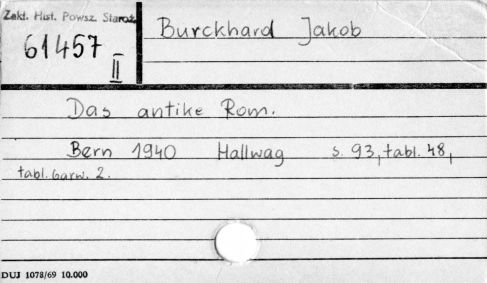 Zakł. Hist. Powsz. Staroż.
61457
II
Burckhard Jakob
Das antike Rom.
Bern 1940 Hallwag s. 93, tabl. 48,
tabl. barw. 2.
DUJ 1078/69 10.000